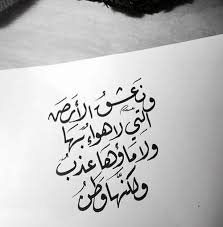 ونعشق الأرض
التي لا هواءٌ بها
ولا ماؤها عذبُ
ولكنّها وطنُ